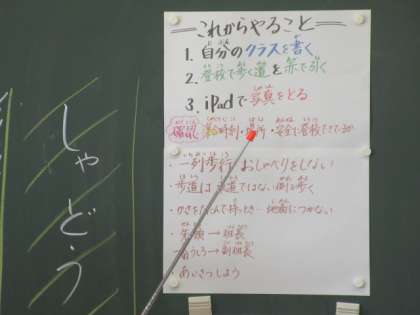 これからやること
1. 自分のクラスを書く
2. 登校で歩く道を赤で引く
3. iPadで写真をとる
確認 時刻・場所・安全に登校できているか
・一列歩行 おしゃべりをしない
・歩道は車道ではない側を歩く
・かさをたたんで持つとき…地面につかない
・先頭→班長
一番うしろ→副班長
・あいさつしよう
しゃどう